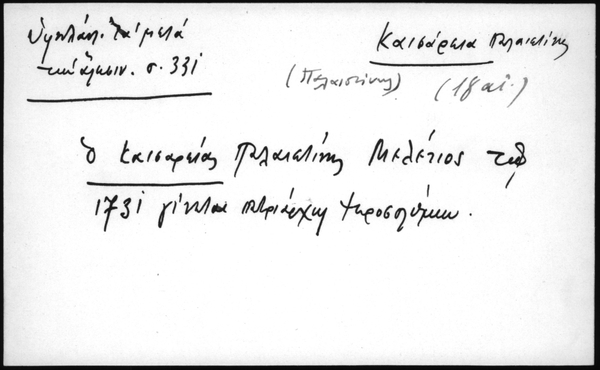 Ὑψηλάν. Τὰ μετὰ
τὴν ἅλωσιν. σ. 331
Καισάρεια Παλαιστίνης
(Παλαιστίνης) (18 αἰ.)
ὁ Καισαρείας Παλαιστίνης Μελέτιος τῷ
1731 γίνεται πατριάρχης Ἱεροσολύμων.